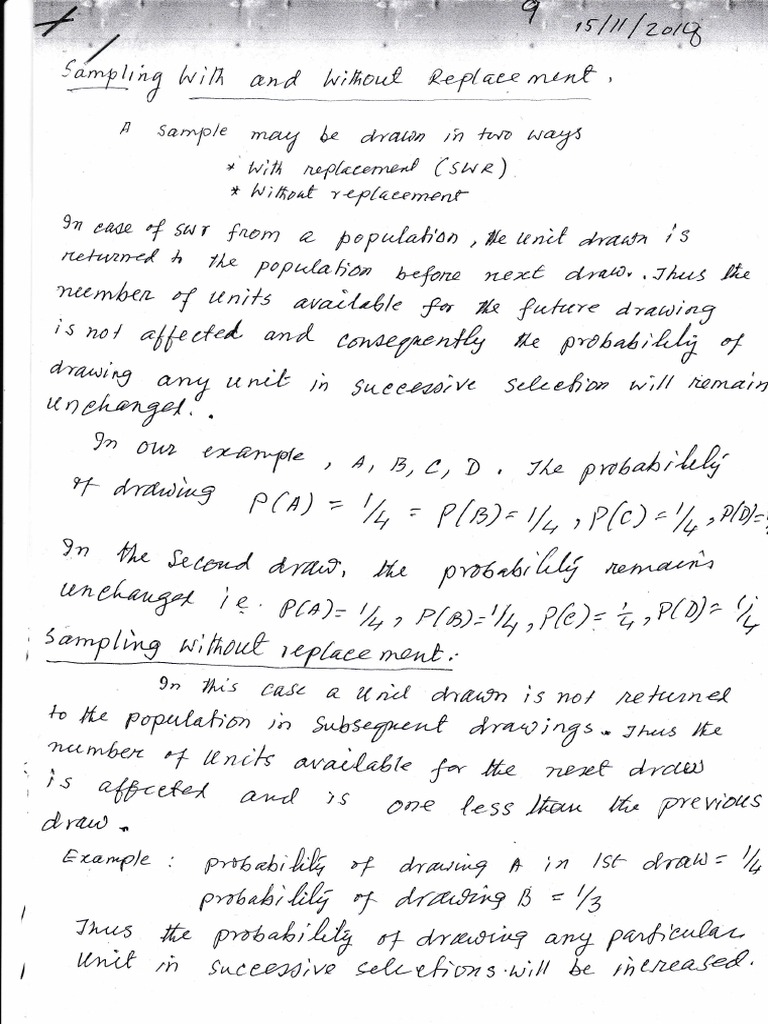 9
15/11/2018
Sampling With and Without Replacement.
A sample may be drawn in two ways
* With replacement (SWR)
* Without replacement
In case of swr from a population, the unit drawn is
returned to the population before next draw. Thus the
number of units available for the future drawing
is not affected and consequently the probability of
drawing any unit in successive selection will remain
unchanged.
In our example, A, B, C, D. The probability
of drawing P(A) = 1/4 = P(B) = 1/4, P(C) = 1/4, P(D)=
In the second draw, the probability remains
unchanged i.e. P(A) = 1/4, P(B) = 1/4, P(C) = 1/4, P(D) = 1/4
Sampling without replacement:
In this case a unit drawn is not returned
to the population in subsequent drawings. Thus the
number of units available for the next draw
is affected and is one less than the previous
draw.
Example : probability of drawing A in 1st draw = 1/4
probability of drawing B = 1/3
Thus the probability of drawing any particular
unit in successive selections will be increased.